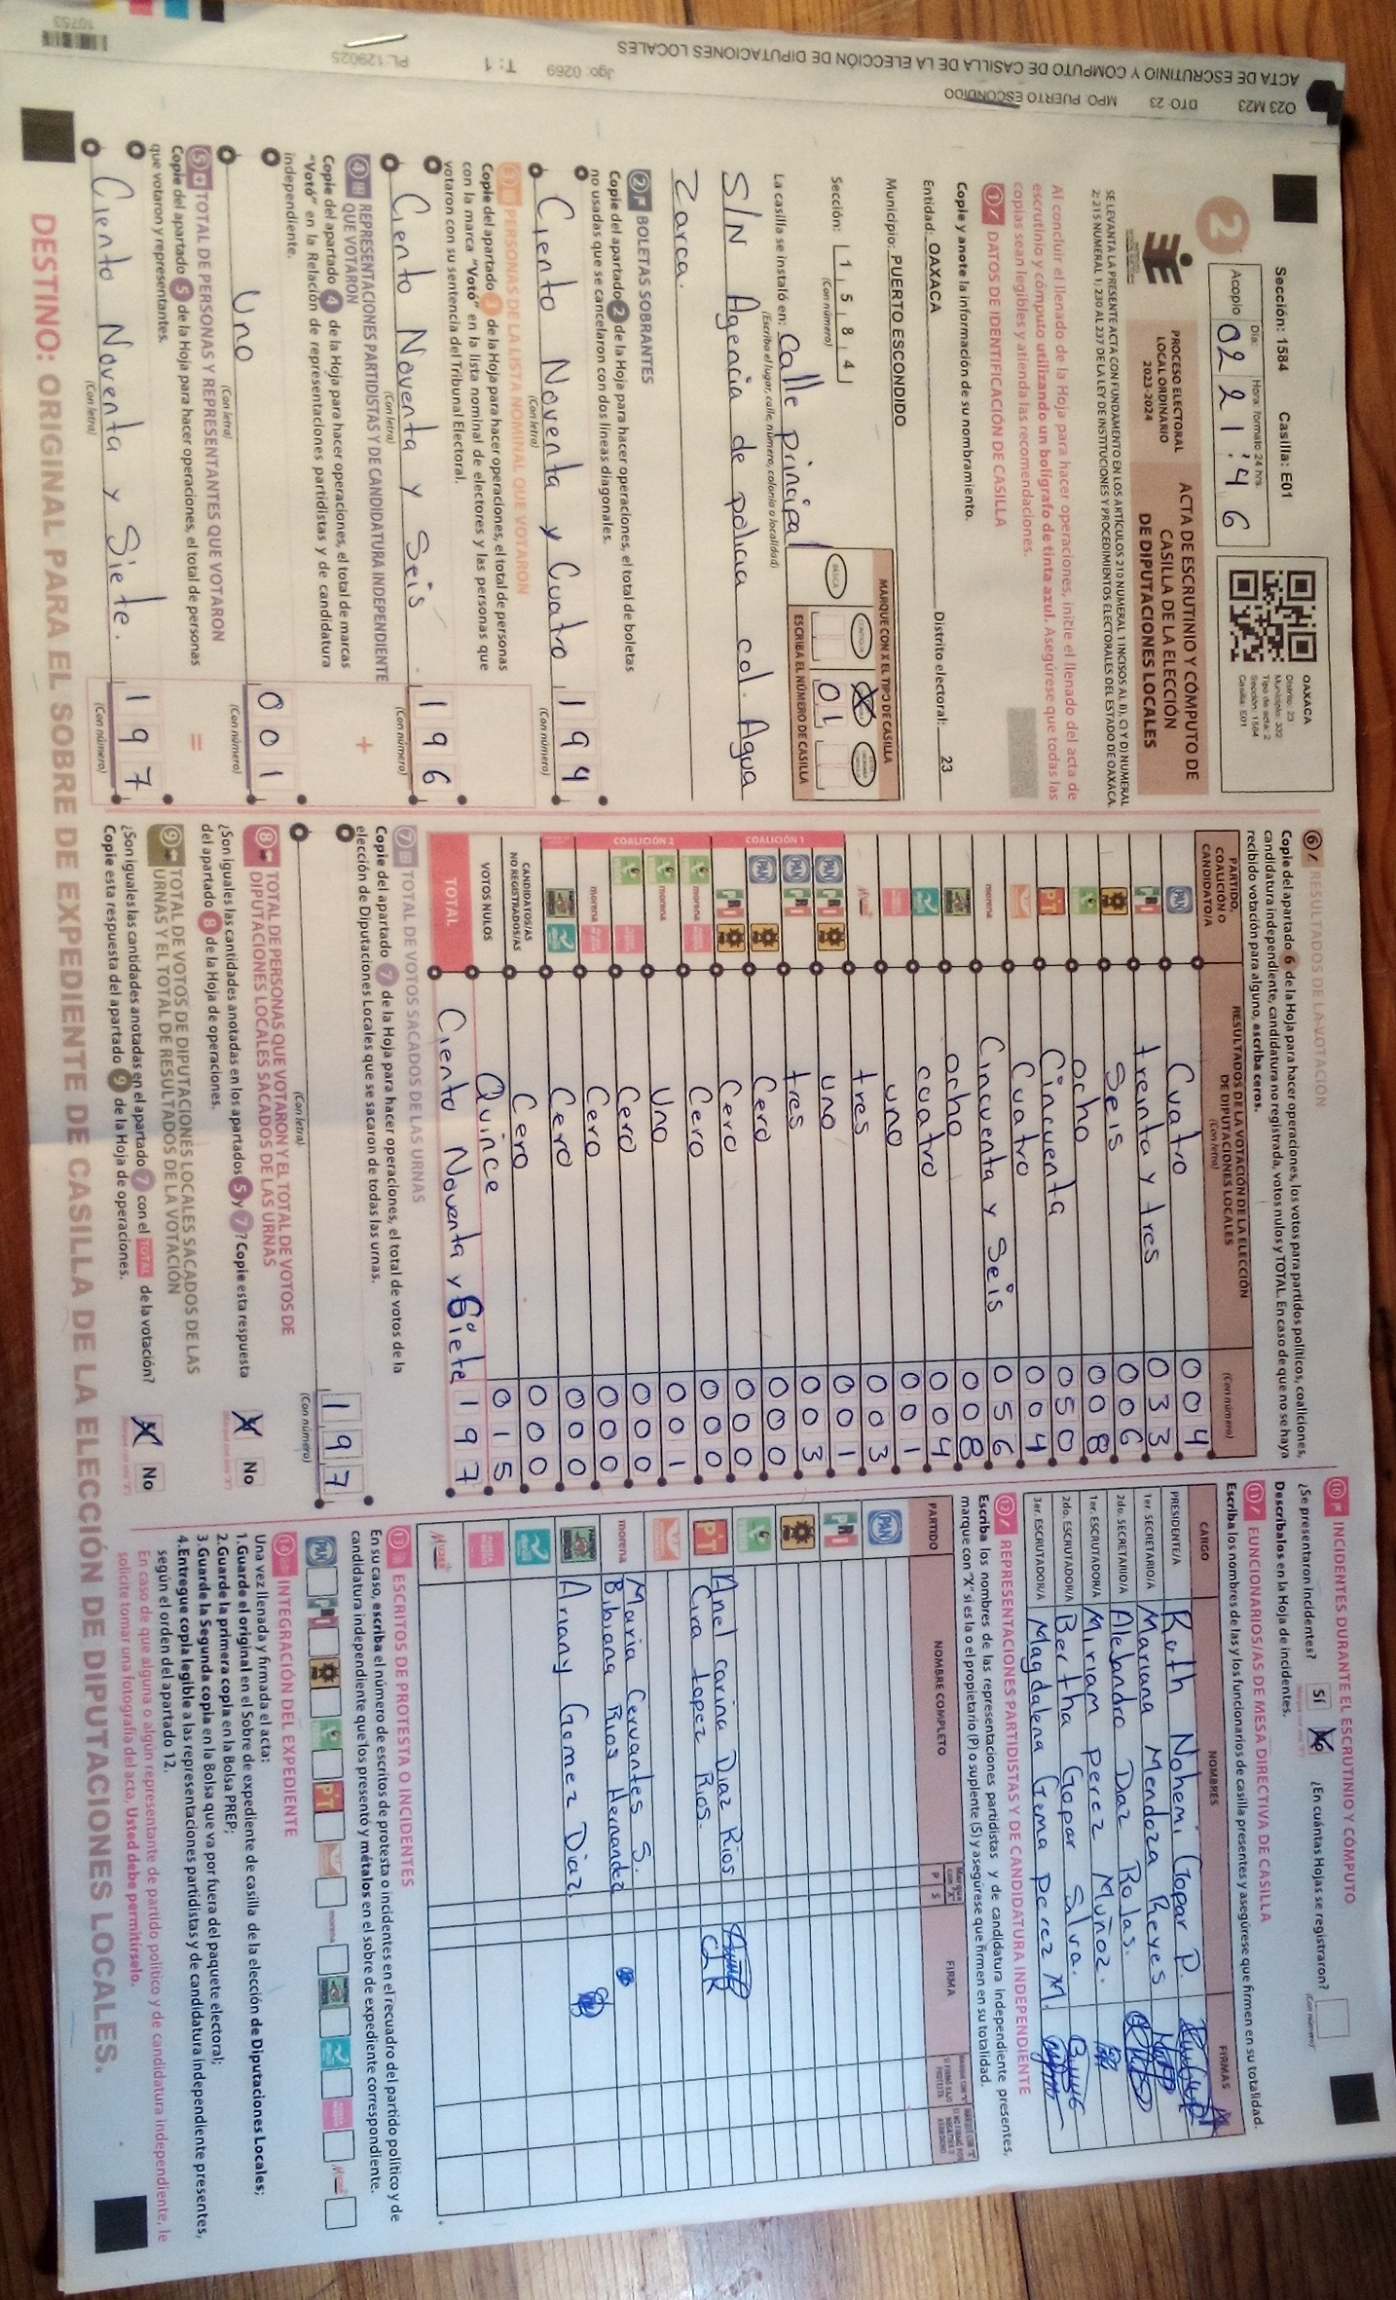 ACTA DE ESCRUTINIO Y CÓMPUTO DE CASILLA DE LA ELECCIÓN DE DIPUTACIONES LOCALES
O23 M23 DTO 23 MPO PUERTO ESCONDIDO
Jgo: 0269 T: 1 PL: 129025
10753
Sección: 1584 Casilla: E01
2
Acopio
Día: Hora: formato 24 hrs.
02 21:46
OAXACA
Distrito: 23
Tipo de acta: 2
Sección: 1584
Casilla: E01
PROCESO ELECTORAL
LOCAL ORDINARIO
2023-2024
ACTA DE ESCRUTINIO Y CÓMPUTO DE
CASILLA DE LA ELECCIÓN
DE DIPUTACIONES LOCALES
SE LEVANTA LA PRESENTE ACTA CON FUNDAMENTO EN LOS ARTÍCULOS 210 NUMERAL 1 INCISOS A), B), C) Y D) NUMERAL
2; 215 NUMERAL 1; 230 AL 237 DE LA LEY DE INSTITUCIONES Y PROCEDIMIENTOS ELECTORALES DEL ESTADO DE OAXACA.
Al concluir el llenado de la Hoja para hacer operaciones, inicie el llenado del acta de
escrutinio y cómputo utilizando un bolígrafo de tinta azul. Asegúrese que todas las
copias sean legibles y atienda las recomendaciones.
1 DATOS DE IDENTIFICACIÓN DE CASILLA
Copie y anote la información de su nombramiento.
Entidad: OAXACA Distrito electoral: 23
Municipio: PUERTO ESCONDIDO
Sección: 1 5 8 4
(Con número)
MARQUE CON X EL TIPO DE CASILLA
ESCRIBA EL NÚMERO DE CASILLA
01
La casilla se instaló en: Calle principal
(Escriba el lugar, calle, número, colonia o localidad)
S/N Agencia de policia col. Agua
Zarca.
2 BOLETAS SOBRANTES
Copie del apartado 2 de la Hoja para hacer operaciones, el total de boletas
no usadas que se cancelaron con dos líneas diagonales.
Ciento Noventa y Cuatro 194
(Con letra) (Con número)
3 PERSONAS DE LA LISTA NOMINAL QUE VOTARON
Copie del apartado 3 de la Hoja para hacer operaciones, el total de personas
con la marca "Votó" en la lista nominal de electores y las personas que
votaron con su sentencia del Tribunal Electoral.
Ciento Noventa y Seis. 196
(Con letra) (Con número)
4 REPRESENTACIONES PARTIDISTAS Y DE CANDIDATURA INDEPENDIENTE
QUE VOTARON
+
Copie del apartado 4 de la Hoja para hacer operaciones, el total de marcas
"Votó" en la Relación de representaciones partidistas y de candidatura
independiente.
Uno 001
(Con letra) (Con número)
5 TOTAL DE PERSONAS Y REPRESENTANTES QUE VOTARON
=
Copie del apartado 5 de la Hoja para hacer operaciones, el total de personas
que votaron y representantes.
Ciento Noventa y Siete. 197
(Con letra) (Con número)
6 RESULTADOS DE LA VOTACIÓN
Copie del apartado 6 de la Hoja para hacer operaciones, los votos para partidos políticos, coaliciones,
candidatura independiente, candidatura no registrada, votos nulos y TOTAL. En caso de que no se haya
recibido votación para alguno, escriba ceros.
PARTIDO, COALICIÓN O CANDIDATO/A RESULTADOS DE LA VOTACIÓN DE LA ELECCIÓN DE DIPUTACIONES LOCALES (Con letra) (Con número)
PAN Cuatro 004
PRI treinta y tres 033
Seis 006
ocho 008
PT Cincuenta 050
Cuatro 004
morena Cincuenta y Seis 056
ocho 008
cuatro 004
uno 001
tres 003
COALICIÓN 1
PAN PRI uno 001
PAN PRI tres 003
PAN Cero 000
PRI Cero 000
COALICIÓN 2
morena Cero 000
morena Uno 001
Cero 000
morena Cero 000
Cero 000
CANDIDATOS/AS NO REGISTRADOS/AS Cero 000
VOTOS NULOS Quince 015
TOTAL Ciento Noventa y Siete 197
7 TOTAL DE VOTOS SACADOS DE LAS URNAS
Copie del apartado 7 de la Hoja para hacer operaciones, el total de votos de la
elección de Diputaciones Locales que se sacaron de todas las urnas.
197
(Con letra) (Con número)
8 TOTAL DE PERSONAS QUE VOTARON Y EL TOTAL DE VOTOS DE
DIPUTACIONES LOCALES SACADOS DE LAS URNAS
¿Son iguales las cantidades anotadas en los apartados 5 y 7? Copie esta respuesta
del apartado 8 de la Hoja de operaciones.
No
9 TOTAL DE VOTOS DE DIPUTACIONES LOCALES SACADOS DE LAS
URNAS Y EL TOTAL DE RESULTADOS DE LA VOTACIÓN
¿Son iguales las cantidades anotadas en el apartado 7 con el TOTAL de la votación?
Copie esta respuesta del apartado 9 de la Hoja de operaciones.
No
10 INCIDENTES DURANTE EL ESCRUTINIO Y CÓMPUTO
¿Se presentaron incidentes? Sí No ¿En cuántas Hojas se registraron?
(Con número)
Descríbalos en la Hoja de incidentes.
11 FUNCIONARIOS/AS DE MESA DIRECTIVA DE CASILLA
Escriba los nombres de las y los funcionarios de casilla presentes y asegúrese que firmen en su totalidad.
CARGO NOMBRES FIRMAS
PRESIDENTE/A Ruth Nohemi Gopar P.
1er. SECRETARIO/A Mariana Mendoza Reyes
2do. SECRETARIO/A Alejandro Diaz Rojas.
1er. ESCRUTADOR/A Miriam perez Muñoz.
2do. ESCRUTADOR/A Bertha Gopar Silva.
3er. ESCRUTADOR/A Magdalena Gema perez M.
12 REPRESENTACIONES PARTIDISTAS Y DE CANDIDATURA INDEPENDIENTE
Escriba los nombres de las representaciones partidistas y de candidatura independiente presentes,
marque con "X" si es la o el propietario (P) o suplente (S) y asegúrese que firmen en su totalidad.
PARTIDO NOMBRE COMPLETO P S FIRMA
PAN
PRI
PT Anel carina Diaz Rios
Cira Lopez Rios.
morena Maria Cervantes S.
Bibiana Rios Hernandez
Ariany Gomez Diaz
13 ESCRITOS DE PROTESTA O INCIDENTES
En su caso, escriba el número de escritos de protesta o incidentes en el recuadro del partido político y de
candidatura independiente que los presentó y métalos en el sobre de expediente correspondiente.
PAN PRI PT morena
14 INTEGRACIÓN DEL EXPEDIENTE
Una vez llenada y firmada el acta:
1.Guarde el original en el Sobre de expediente de casilla de la elección de Diputaciones Locales;
2.Guarde la primera copia en la Bolsa PREP;
3.Guarde la Segunda copia en la Bolsa que va por fuera del paquete electoral;
4.Entregue copia legible a las representaciones partidistas y de candidatura independiente presentes,
según el orden del apartado 12.
En caso de que alguna o algún representante de partido político y de candidatura independiente, le
solicite tomar una fotografía del acta, Usted debe permitírselo.
DESTINO: ORIGINAL PARA EL SOBRE DE EXPEDIENTE DE CASILLA DE LA ELECCIÓN DE DIPUTACIONES LOCALES.